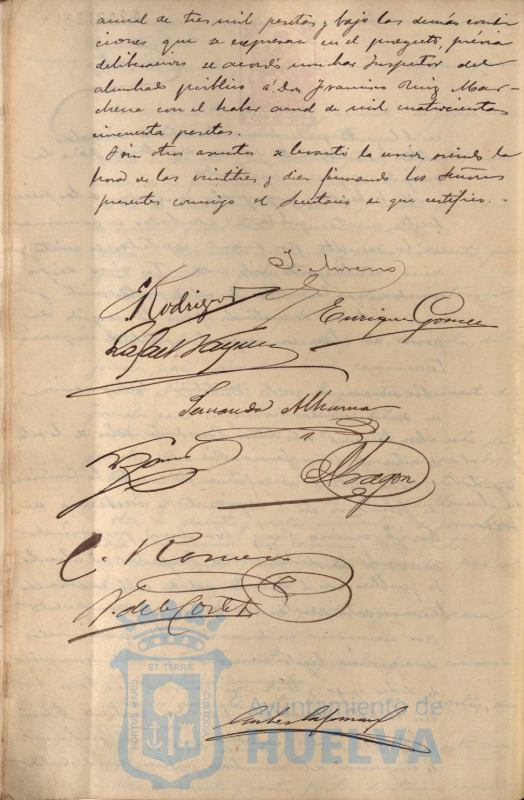 anual de tres mil pesetas y bajo las demás condi-
ciones que se expresan en el proyecto, prévia
deliberacion se acordó nombrar Inspector del
alumbrado público á Don Francisco Ruiz Mar-
chena con el haber anual de mil cuatrocientas
cincuenta pesetas.
Sin otros asuntos se levantó la sesion siendo la
hora de las veintitres y diez firmando los Señores
presentes conmigo el Secretario de que certifico. -
J. Moreno
Rodriguez
Enrique Gomez
Rafael Vazquez
Fernando
Aragon
C. Romero
V. de la Corte
PORTUS MARIS
ET TERRÆ
CUSTODIA
Ayuntamiento de
HUELVA